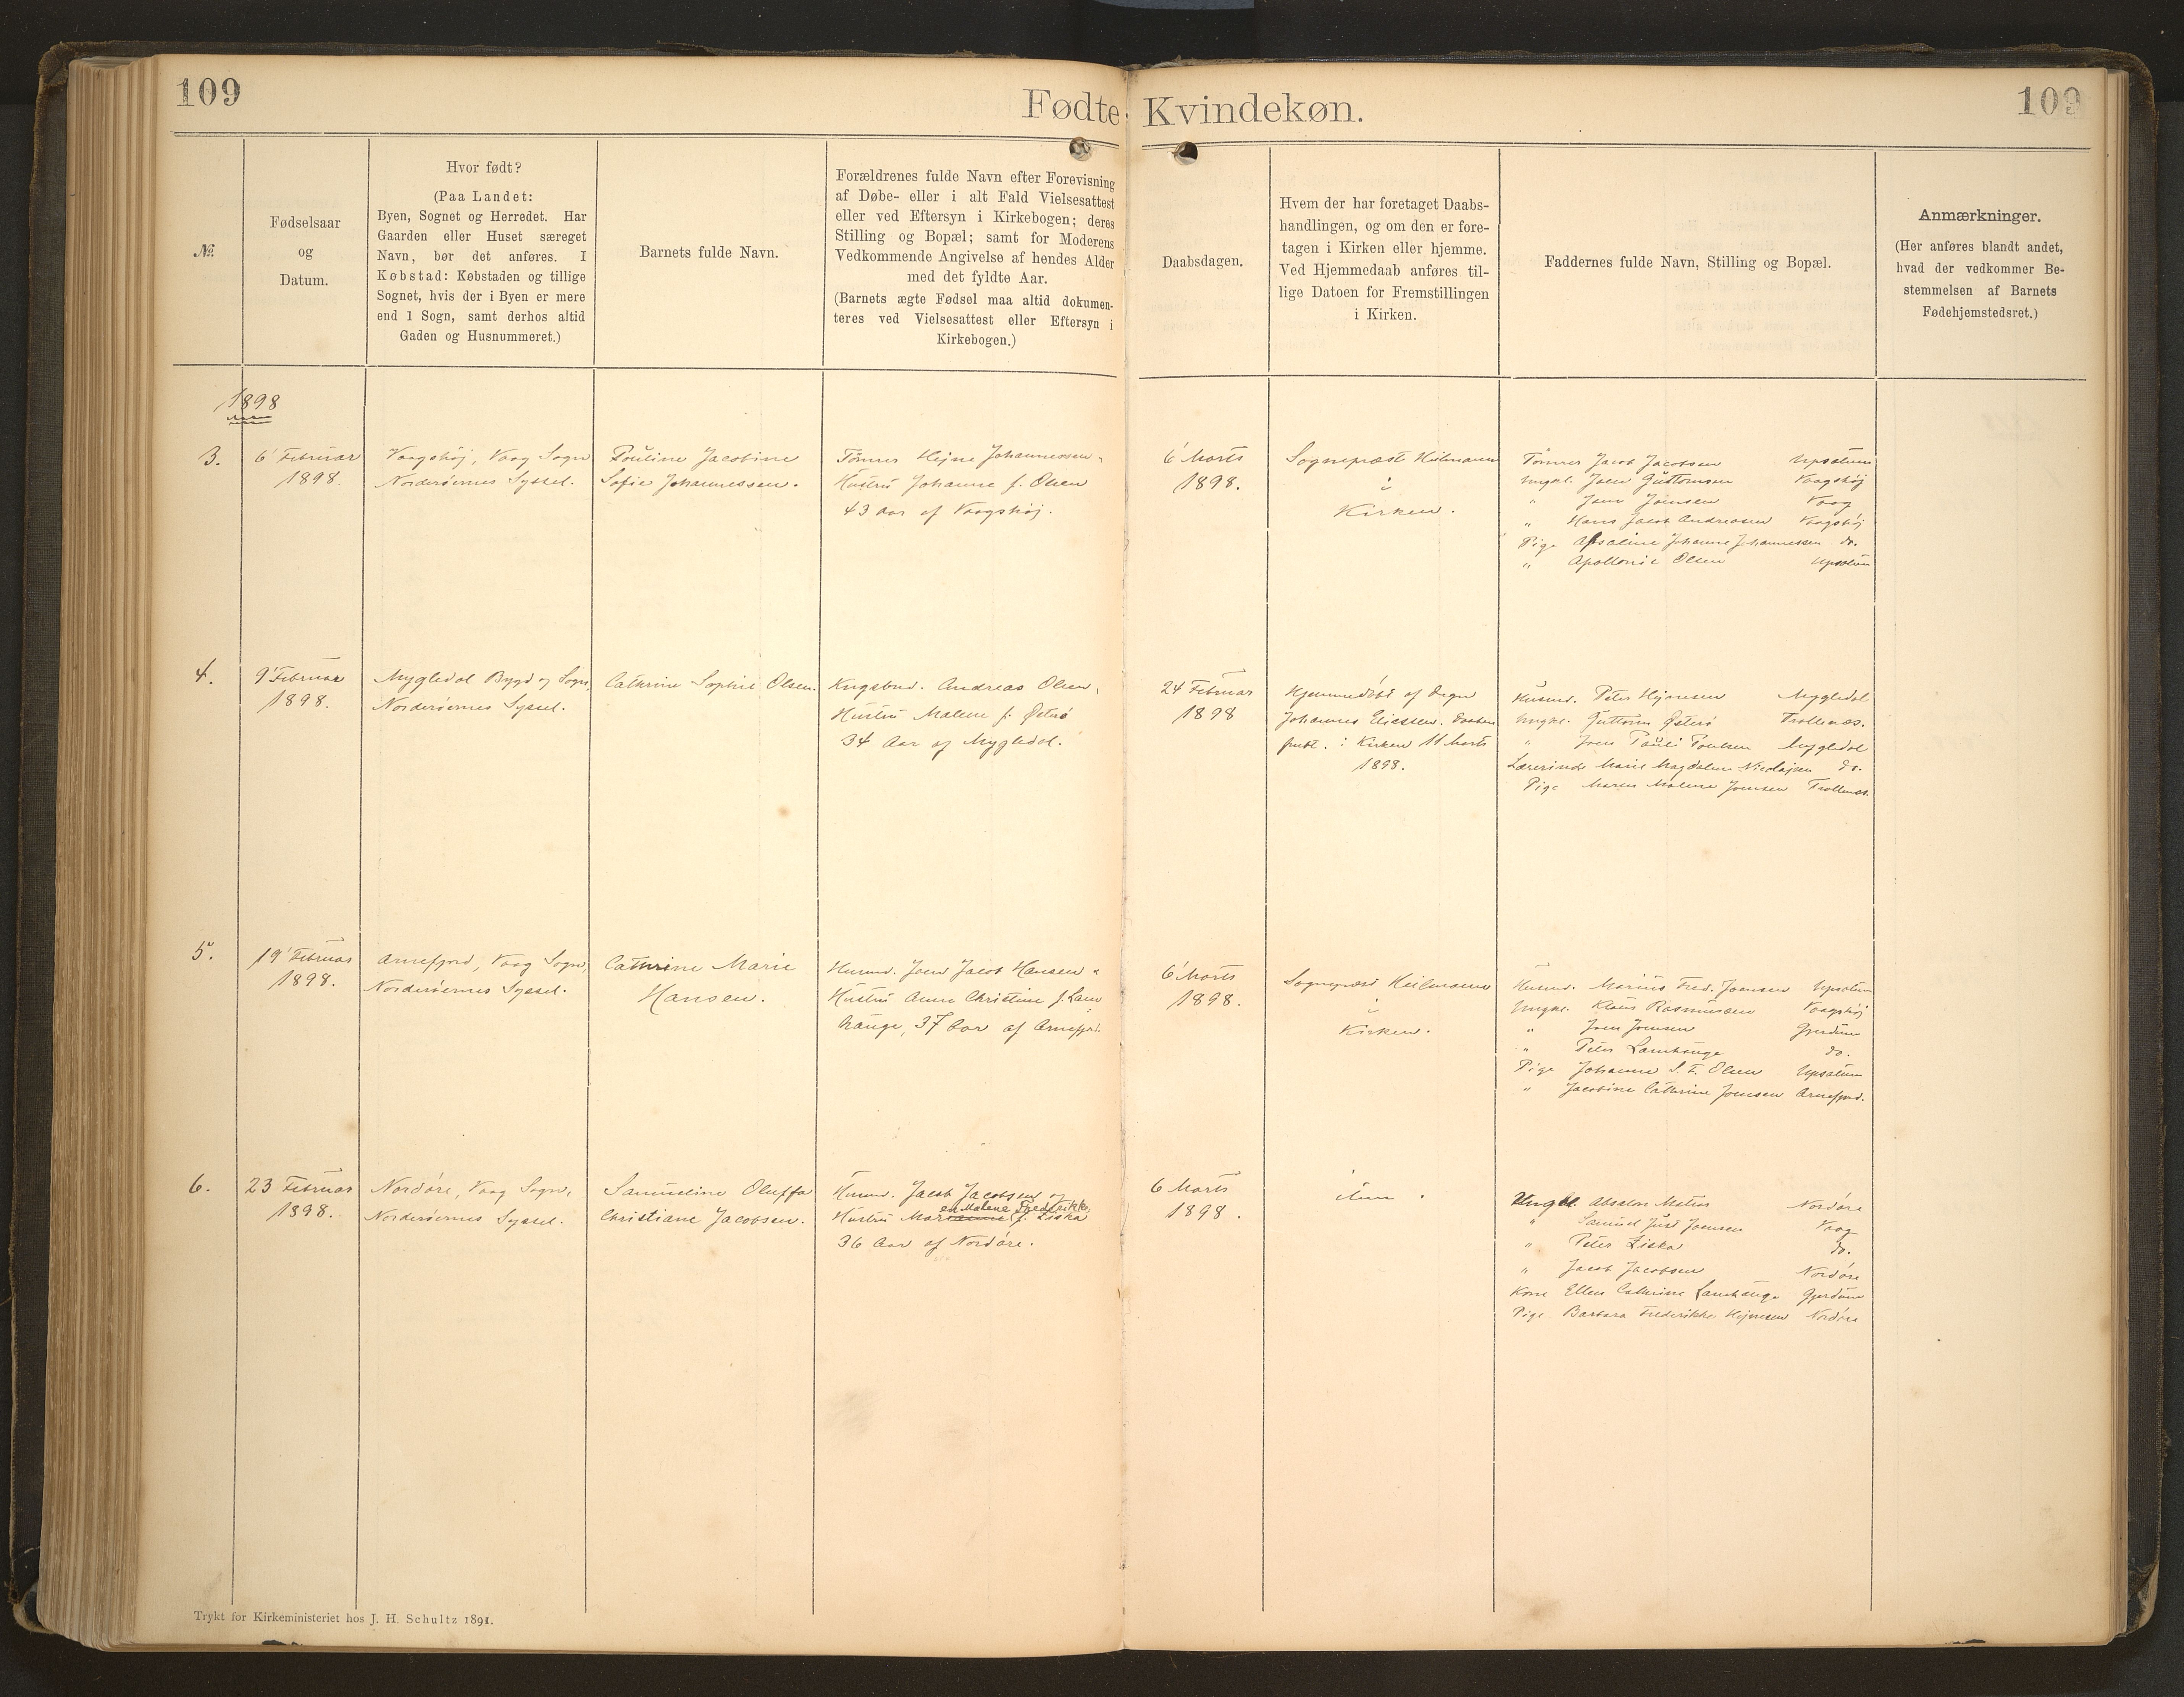 109
Fødte Kvindekøn.
109
№.
Fødselsaar
og
Datum.
Hvor født?
(Paa Landet:
Byen, Sognet og Herredet. Har
Gaarden eller Huset særeget
Navn, bør det anføres. I
Købstad: Købstaden og tillige
Sognet, hvis der i Byen er mere
end 1 Sogn, samt derhos altid
Gaden og Husnummeret.)
Barnets fulde Navn.
Forældrenes fulde Navn efter Forevisning
af Døbe- eller i alt Fald Vielsesattest
eller ved Eftersyn i Kirkebogen; deres
Stilling og Bopæl; samt for Moderens
Vedkommende Angivelse af hendes Alder
med det fyldte Aar.
(Barnets ægte Fødsel maa altid dokumen-
teres ved Vielsesattest eller Eftersyn i
Kirkebogen.)
Daabsdagen.
Hvem der har foretaget Daabs-
handlingen, og om den er fore-
tagen i Kirken eller hjemme.
Ved Hjemmedaab anføres til-
lige Datoen for Fremstillingen
i Kirken.
Faddernes fulde Navn, Stilling og Bopæl.
Anmærkninger.
(Her anføres blandt andet,
hvad der vedkommer Be-
stemmelsen af Barnets
Fødehjemstedsret.)
1898
3.
6' Februar
1898.
Vaagshøj, Vaag Sogn
Norderøernes Syssel.
Pouline Jacobine
Sofie Johannessen.
Tømrer Hejne Johannessen,
Hustru Johanne f. Olsen
43 Aar af Vaagshøj.
6' Marts
1898.
Sognepræst Heilmann
i
Kirken.
Tømrer Jacob Jacobsen Upsalum
Ungkl. Joen Guttormsen Vaagshøj
" Joen Joensen Vaag
" Hans Jacob Andreasen Vaagshøj
Pige Johanne Johannessen do.
" Apollonie Olsen Upsalum
4.
9' Februar
1898.
Mygledal Bygd og Sogn,
Norderøernes Syssel.
Cathrine Sophie Olsen.
Kngsbnd. Andreas Olsen,
Hustru Malene f. Østerø
34 Aar af Mygledal.
24 Februar
1898
Hjemmedøbt af Degn
Johannes Eliassen. Daaben
publ. i Kirken 11 Marts
1898.
Husmd. Peter Hejnesen Mygledal
Ungkl. Guttorm Østerø Trollenæs.
" Joen Pauli Poulsen Mygledal
Lærerinde Marie Magdalene Nicolajsen do.
Pige Maren Malene Joensen Trollenæs.
5.
19' Februar
1898.
Arnefjord, Vaag Sogn,
Norderøernes Syssel.
Cathrine Marie
Hansen.
Husmd. Joen Jacob Hansen
Hustru Anna Christine f. Lam
hauge, 37 Aar af Arnefjord.
6' Marts
1898.
Sognepræst Heilmann
i
Kirken.
Husmd. Marius Fred. Joensen Upsalum
Ungkl. Klaus Rasmussen Vaagshøj
" Joen Joensen Gjerdum
" Peter Lamhauge do.
Pige Johanne S. F. Olsen Upsalum
" Jacobine Cathrine Joensen Arnefjord.
6.
23 Februar
1898.
Nordøre, Vaag Sogn,
Norderøernes Syssel.
Samueline Oluffa
Christiane Jacobsen.
Husmd. Jacob Jacobsen og
en Malene Fredrikke
Hustru Marianne f. Ziska
36 Aar af Nordøre.
6 Marts
1898.
item.
Ungkl. Absalon Matras Nordøre
" Samuel Just Joensen Vaag
" Peter Ziska do.
" Jacob Jacobsen Nordøre
Kone Ellen Cathrine Lamhauge Gjerdum
Pige Barbara Frederikke Hejnesen Nordøre
Trykt for Kirkeministeriet hos J. H. Schultz 1891.